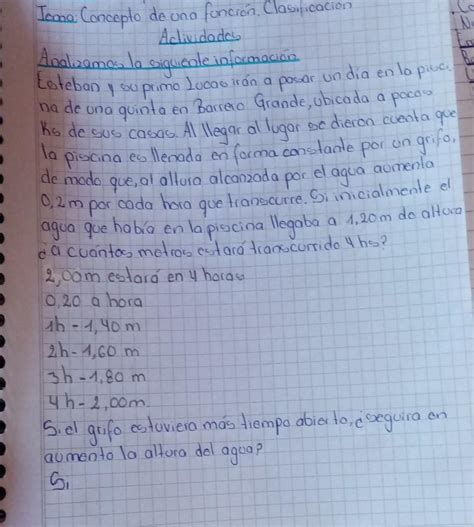 Tema: Concepto de una función. Clasificación
Actividades
Analizamos la siguiente información
Esteban y su primo Lucas irán a pasar un día en la pisci
na de una quinta en Barrero Grande, ubicada a pocas
hs de sus casas. Al llegar al lugar se dieron cuenta que
la piscina es llenada en forma constante por un grifo,
de modo que, al altura alcanzada por el agua aumenta
0,2m por cada hora que transcurre. Si inicialmente el
agua que había en la piscina llegaba a 1,20m de altura
¿a cuántos metros estará transcurrido 4 hs?
2,00m estará en 4 horas
0,20 a hora
1h - 1,40 m
2h - 1,60 m
3h - 1,80 m
4h - 2,00m.
Si el grifo estuviera más tiempo abierto, ¿seguira en
aumento la altura del agua?
Si